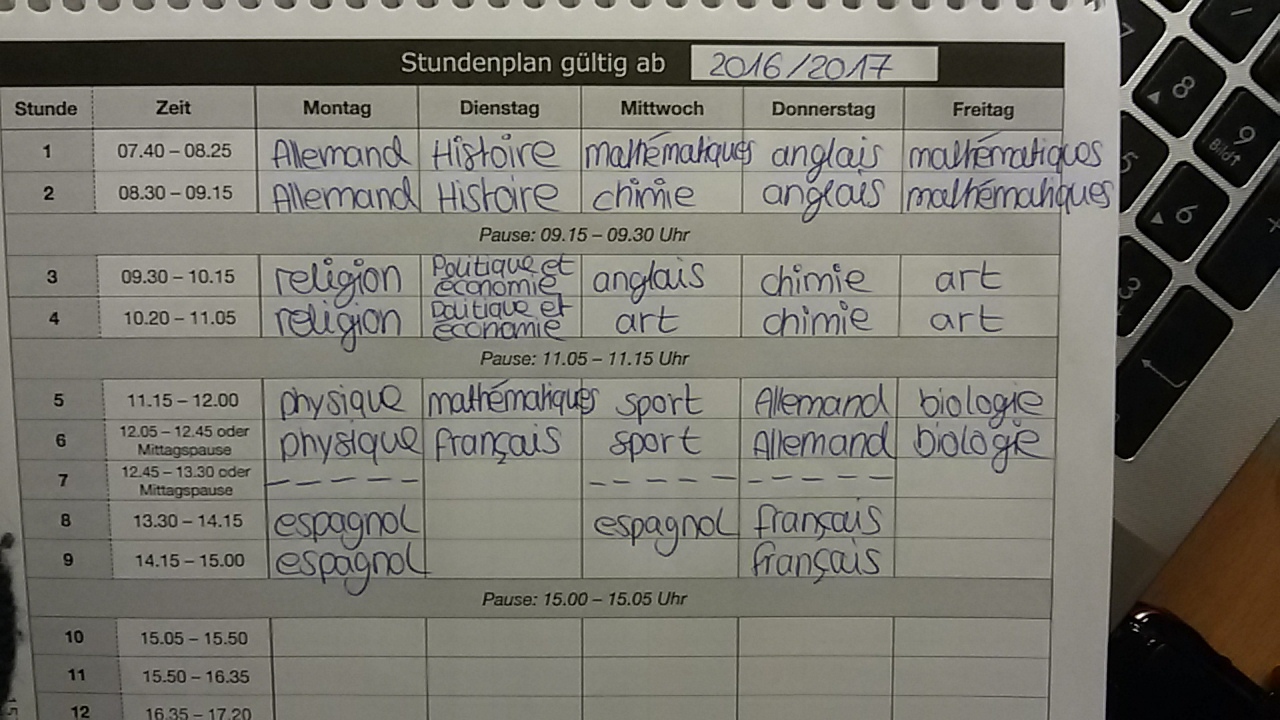 Stundenplan gültig ab 2016/2017
Stunde Zeit Montag Dienstag Mittwoch Donnerstag Freitag
1 07.40 – 08.25 Allemand Histoire mathématiques anglais mathématiques
2 08.30 – 09.15 Allemand Histoire chimie anglais mathématiques
Pause: 09.15 – 09.30 Uhr
3 09.30 – 10.15 religion Politique et économie anglais chimie art
4 10.20 – 11.05 religion Politique et économie art chimie art
Pause: 11.05 – 11.15 Uhr
5 11.15 – 12.00 physique mathématiques sport Allemand biologie
6 12.05 – 12.45 oder Mittagspause physique français sport Allemand biologie
7 12.45 – 13.30 oder Mittagspause – – – – – – – – – – – – – – –
8 13.30 – 14.15 espagnol espagnol français
9 14.15 – 15.00 espagnol français
Pause: 15.00 – 15.05 Uhr
10 15.05 – 15.50
11 15.50 – 16.35
12 16.35 – 17.20
7
8
9
Bild↑
5
6
3